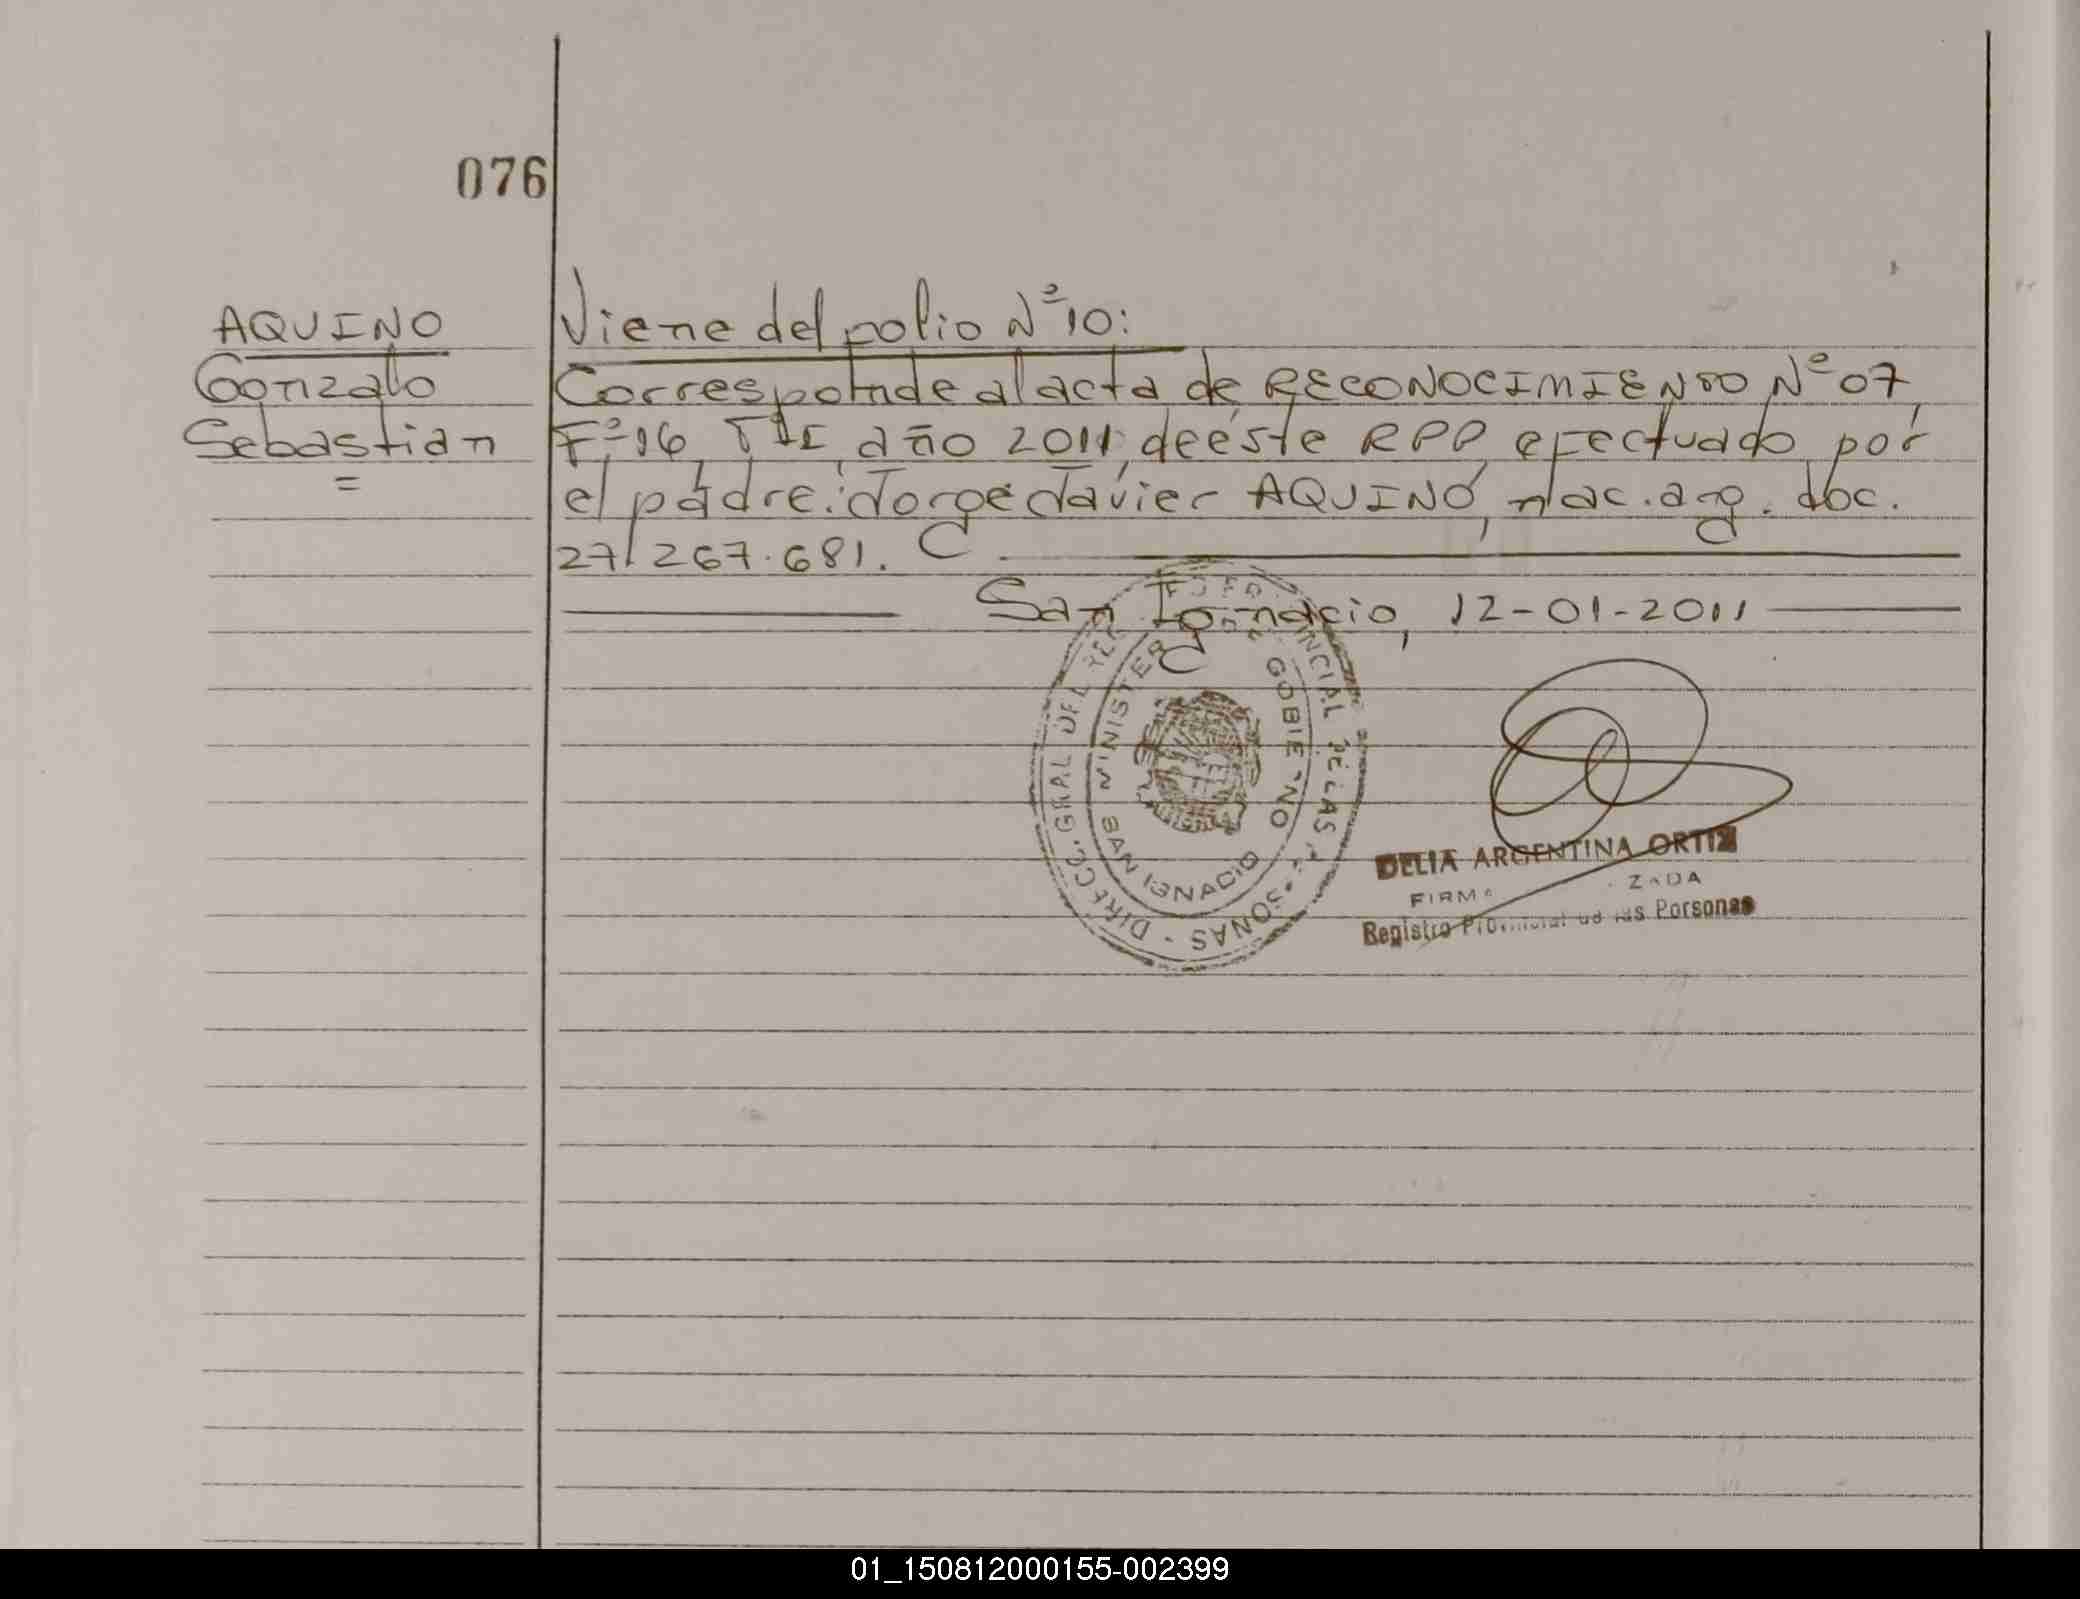 076
AQUINO
Gonzalo
Sebastian
=
Viene del folio Nº 10:
Corresponde al acta de RECONOCIMIENTO Nº 07,
Fº 16, Tº I, año 2011, de este RPP, efectuado por
el padre: Jorge Javier AQUINO, nac. arg. doc.
27.267.681.
San Ignacio, 12-01-2011
DIRECC. GRAL DEL INCIAL DE LAS SONAS -
MINISTER DE GOBIERNO
SAN IGNACIO
DELIA ARGENTINA ORTIZ
FIRMA ZADA
Registro Provincial de las Personas
01_150812000155-002399